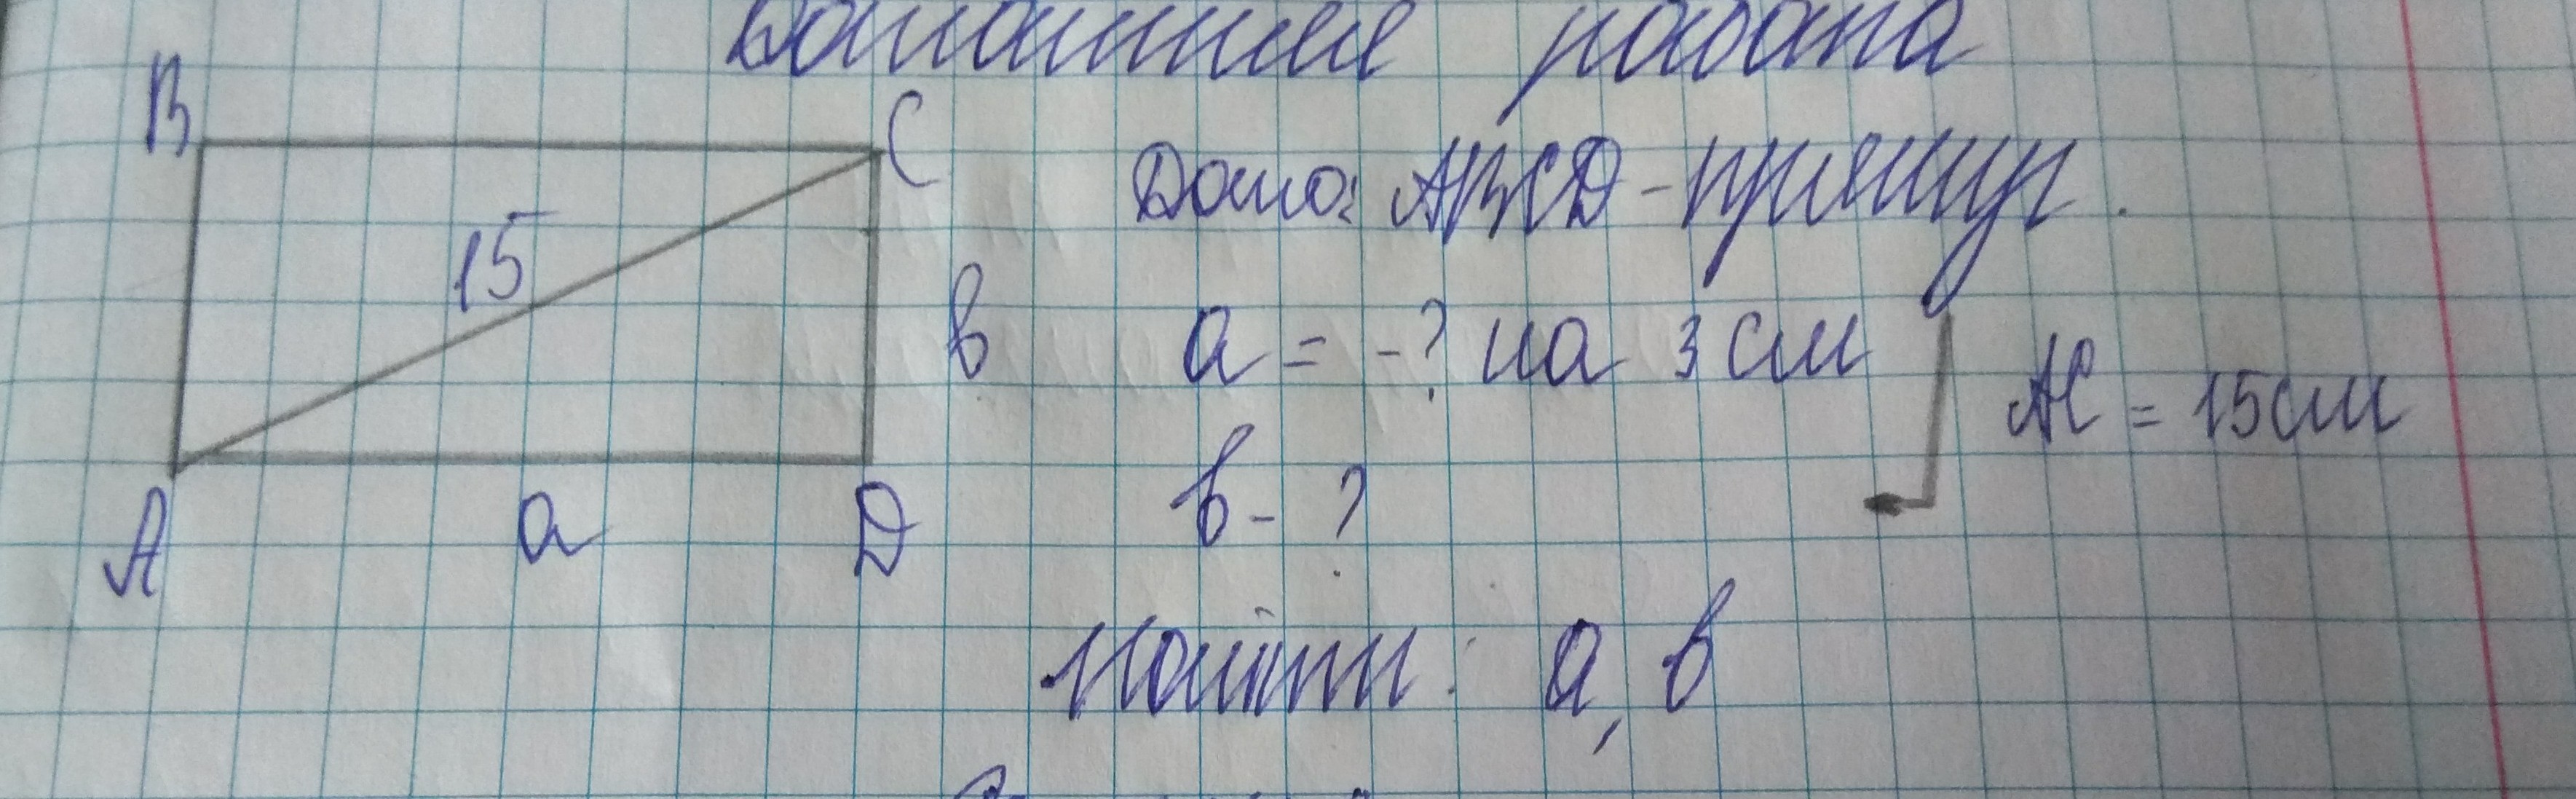 Домашняя работа
B
C
Дано: ABCD - прямоуг.
15
в
a = -? на 3 см
AC = 15см
в - ?
A
a
D
Найти: a, в